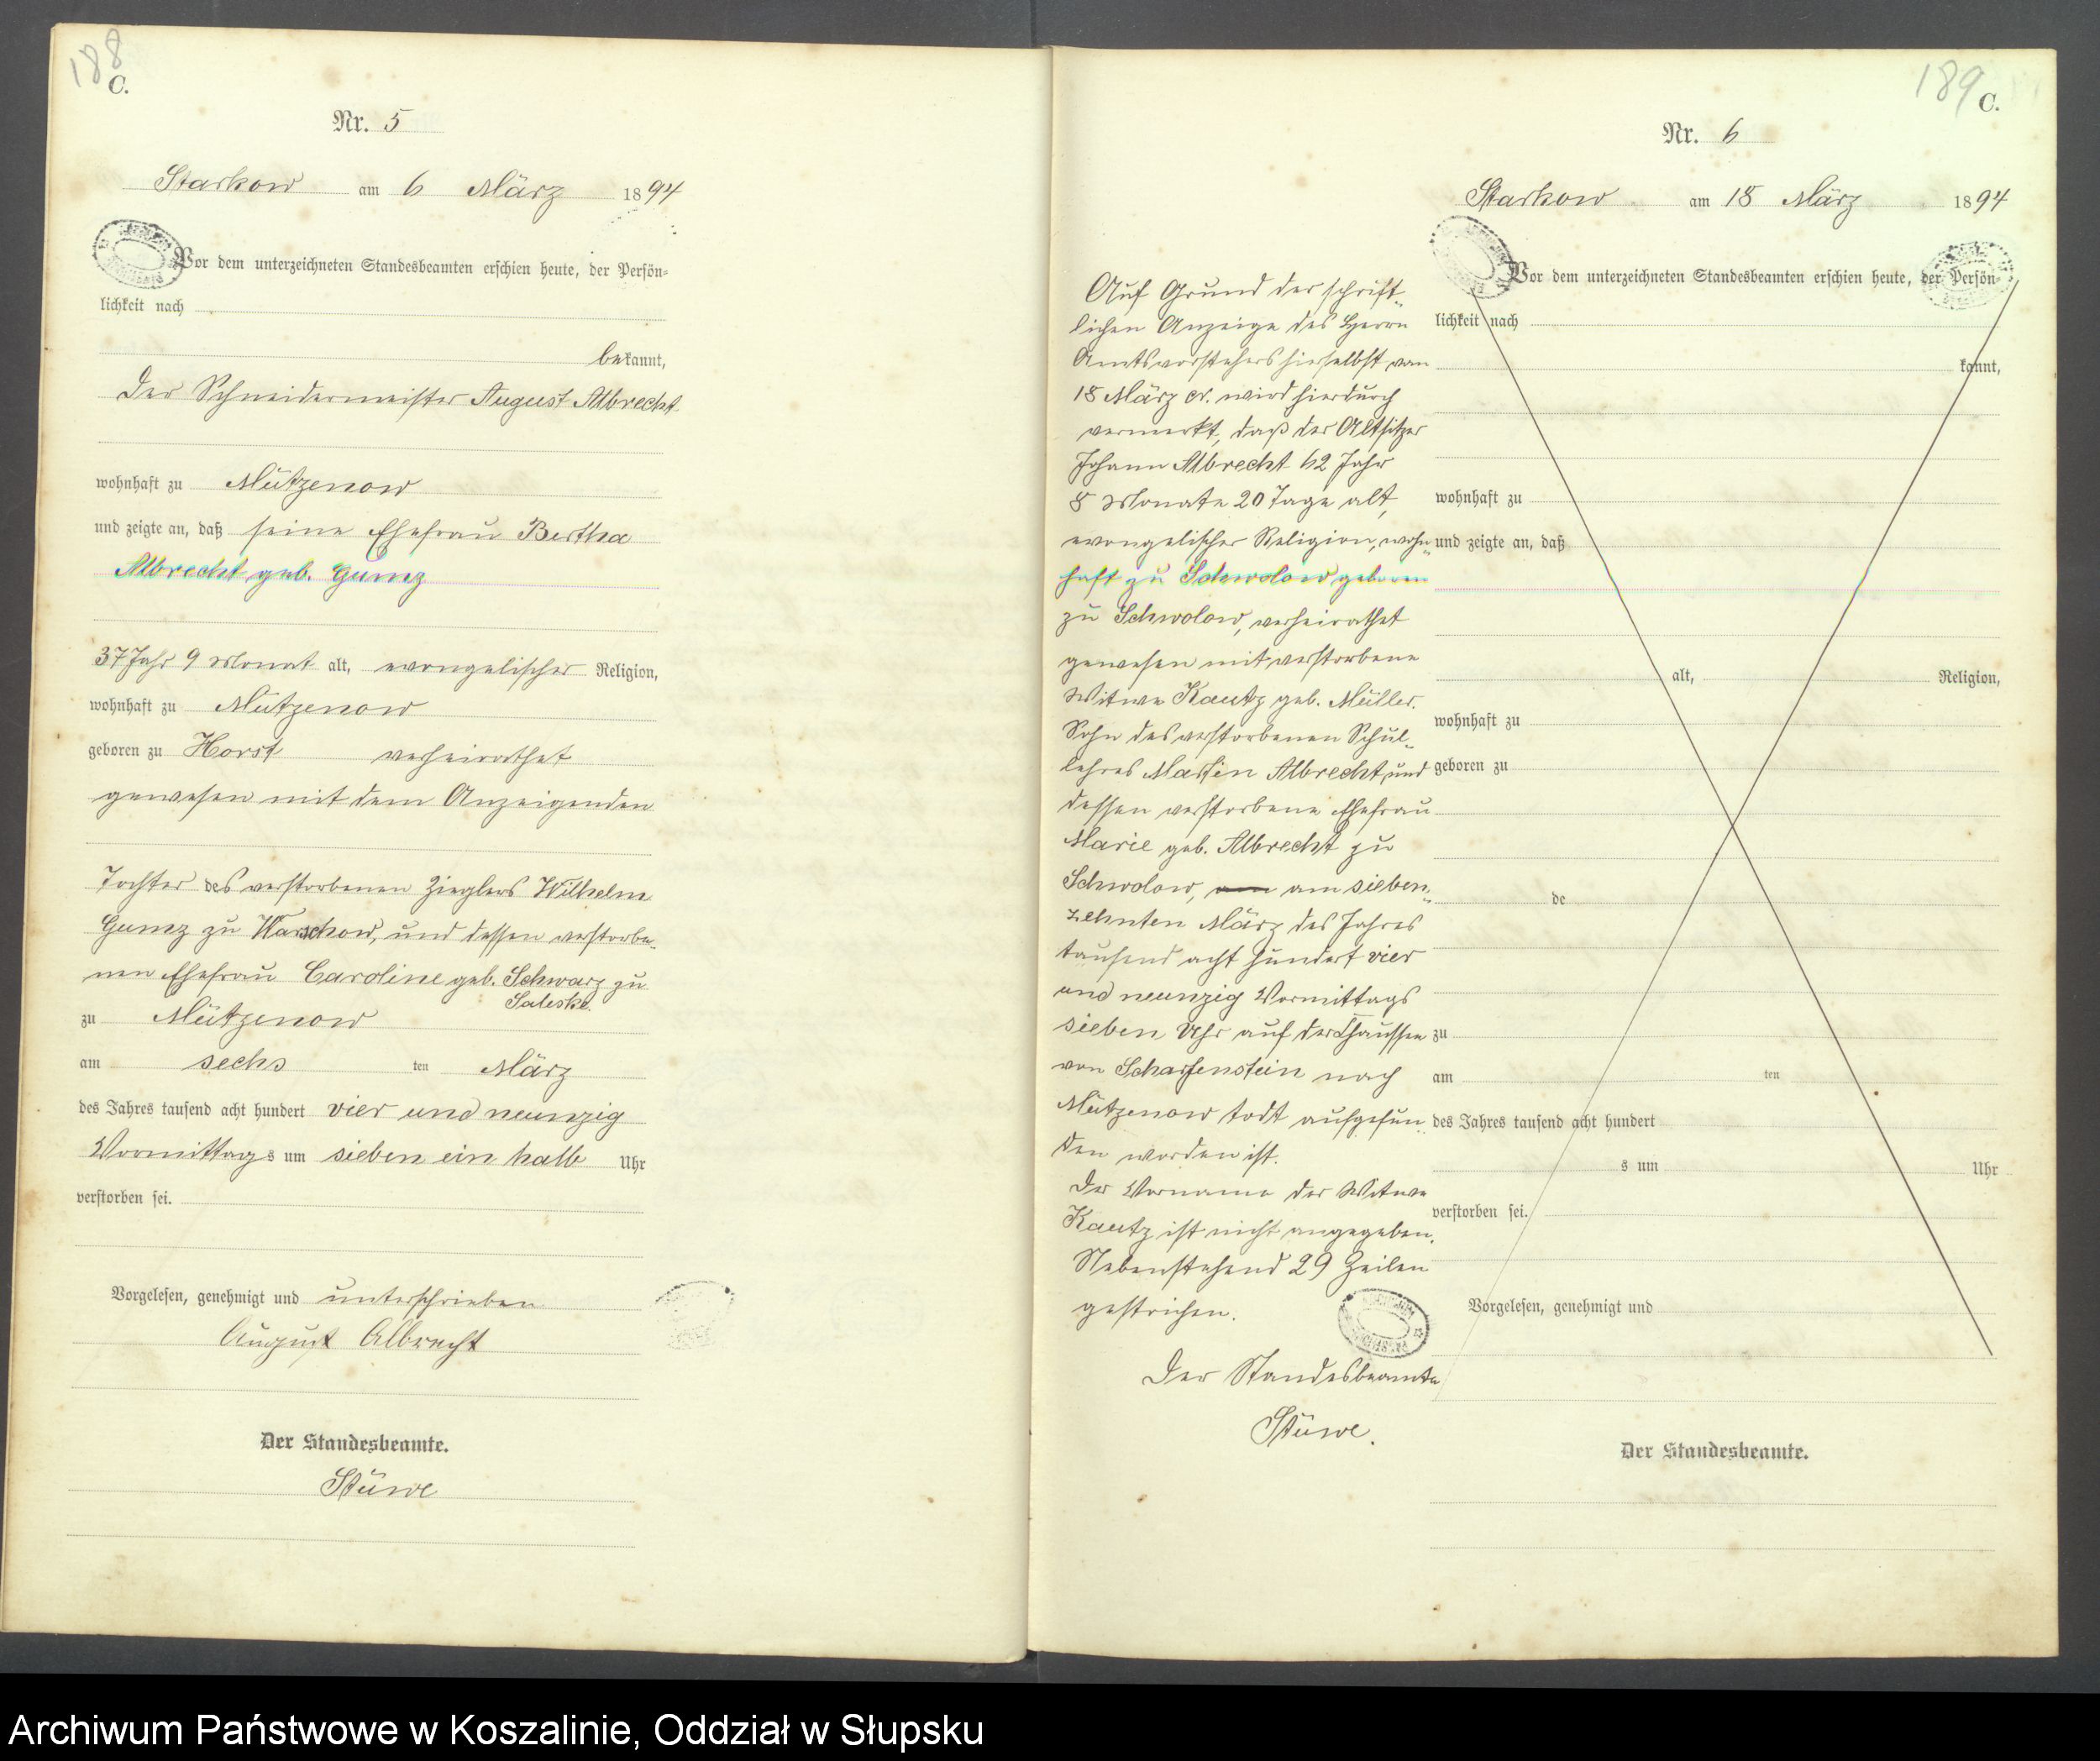 188
C.
Nr. 5
Starkow am 6 März 1894
Vor dem unterzeichneten Standesbeamten erschien heute, der Persön-
lichkeit nach
bekannt,
der Schneidermeister August Albrecht
wohnhaft zu Mützenow
und zeigte an, daß seine Ehefrau Bertha
Albrecht geb. Gumz
37 Jahr 9 Monat alt, evangelischer Religion,
wohnhaft zu Mützenow
geboren zu Horst verheirathet
gewesen mit dem Anzeigenden
Tochter des verstorbenen Zieglers Wilhelm
Gumz zu Warschow, und dessen verstorbe-
nen Ehefrau Caroline geb. Schwarz zu
Saleske.
zu Mützenow
am sechs ten März
des Jahres tausend acht hundert vier und neunzig
Vormittags um sieben ein halb Uhr
verstorben sei.
Vorgelesen, genehmigt und unterschrieben
August Albrecht
Der Standesbeamte.
Stüwe
189
C.
Nr. 6
Starkow am 18 März 1894
Auf Grund der schrift-
lichen Anzeige des Herrn
Amtsvorstehers hierselbst vom
18 März cr. wird hierdurch
vermerkt, daß der Altsitzer
Johann Albrecht 62 Jahr
8 Monate 20 Tage alt,
evangelischer Religion, wohn-
haft zu Schwolow geboren
zu Schwolow, verheirathet
gewesen mit verstorbene
Witwe Kautz geb. Müller.
Sohn des verstorbenen Schul-
lehrers Martin Albrecht, und
dessen verstorbene Ehefrau
Marie geb. Albrecht zu
Schwolow, am sieben-
zehnten März des Jahres
tausend acht hundert vier
und neunzig Vormittags
sieben Uhr auf der Chaussee
von Scharfenstein nach
Mützenow todt aufgefun-
den worden ist.
Der Vorname der Witwe
Kautz ist nicht angegeben.
Nebenstehend 29 Zeilen
gestrichen.
Der Standesbeamte
Stüwe.
Vor dem unterzeichneten Standesbeamten erschien heute, der Persön-
lichkeit nach
kannt,
wohnhaft zu
und zeigte an, daß
alt, Religion,
wohnhaft zu
geboren zu
de
zu
am ten
des Jahres tausend acht hundert
s um Uhr
verstorben sei.
Vorgelesen, genehmigt und
Der Standesbeamte.
Archiwum Państwowe w Koszalinie, Oddział w Słupsku